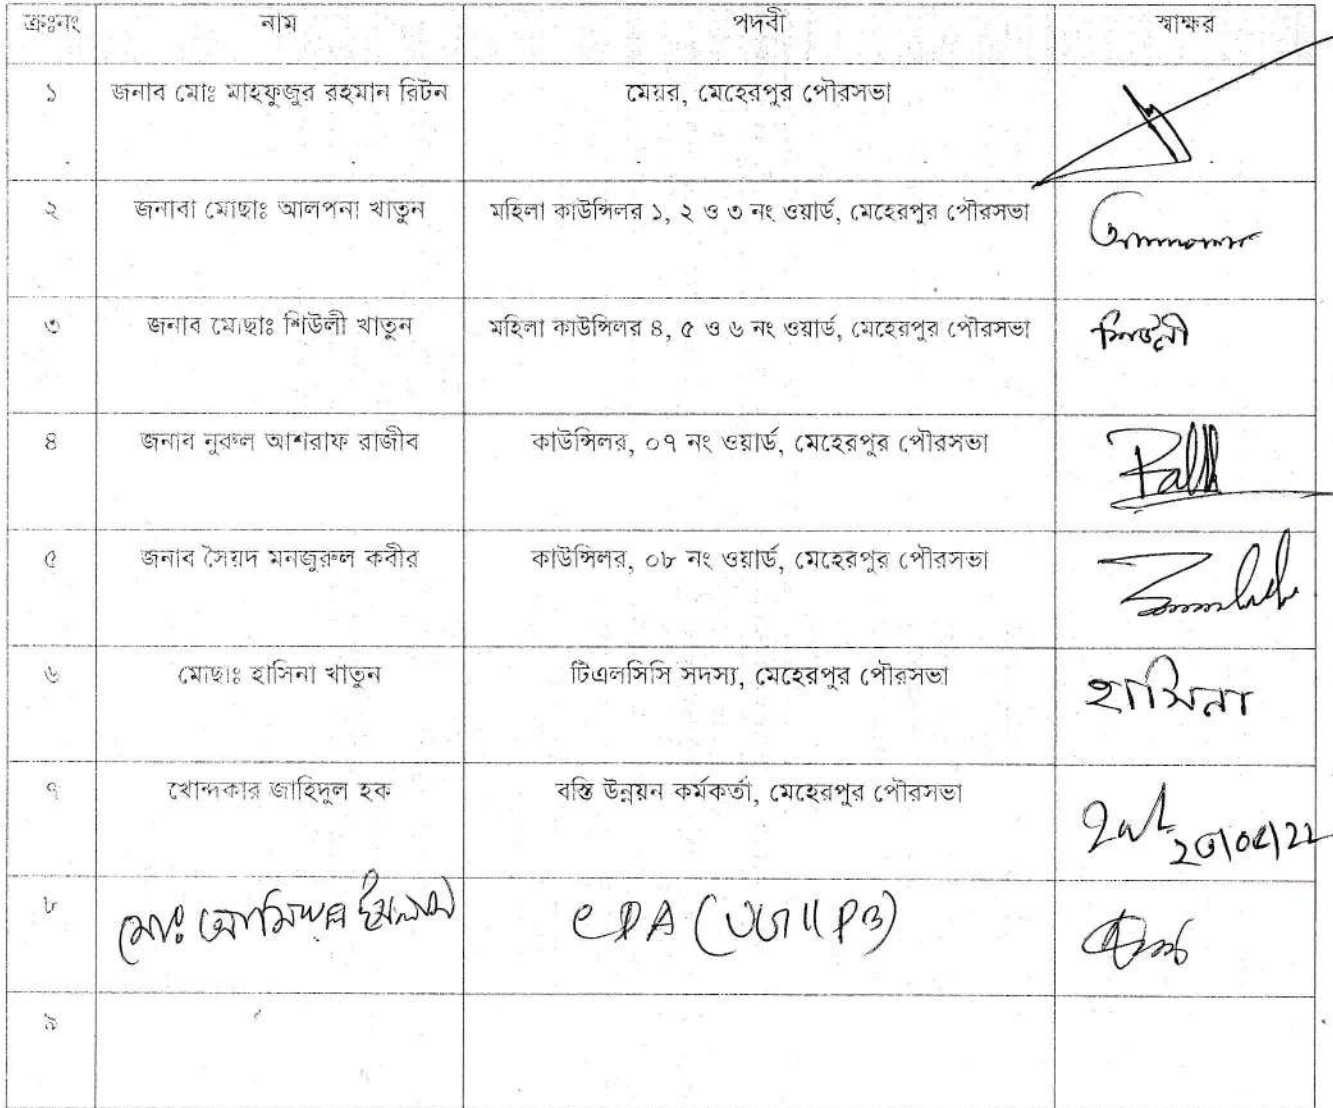 ক্রঃনং নাম পদবী স্বাক্ষর
১ জনাব মোঃ মাহফুজুর রহমান রিটন মেয়র, মেহেরপুর পৌরসভা
২ জনাবা মোছাঃ আলপনা খাতুন মহিলা কাউন্সিলর ১, ২ ও ৩ নং ওয়ার্ড, মেহেরপুর পৌরসভা
৩ জনাব মোছাঃ শিউলী খাতুন মহিলা কাউন্সিলর ৪, ৫ ও ৬ নং ওয়ার্ড, মেহেরপুর পৌরসভা শিউলী
৪ জনাব নুরুল আশরাফ রাজীব কাউন্সিলর, ০৭ নং ওয়ার্ড, মেহেরপুর পৌরসভা
৫ জনাব সৈয়দ মনজুরুল কবীর কাউন্সিলর, ০৮ নং ওয়ার্ড, মেহেরপুর পৌরসভা
৬ মোছাঃ হাসিনা খাতুন টিএলসিসি সদস্য, মেহেরপুর পৌরসভা হাসিনা
৭ খোন্দকার জাহিদুল হক বস্তি উন্নয়ন কর্মকর্তা, মেহেরপুর পৌরসভা
৮ মোঃ ইসলাম
৯